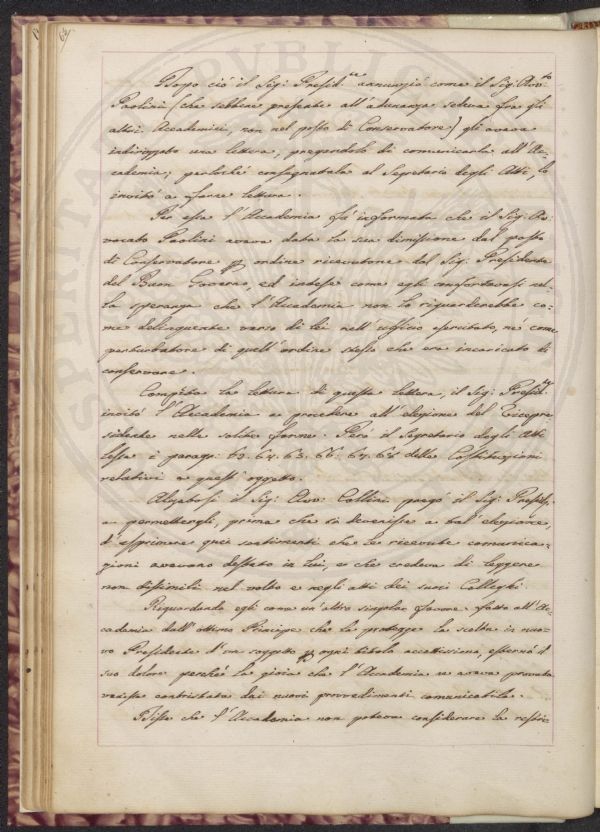 64
Dopo ciò il Sig: Presid.te annunziò come il Sig: Avv.to
Paolini (che sebbene presente all'adunanza sedeva fra gli
altri Accademici, non nel posto di Conservatore) gli aveva
indirizzato una lettera, pregandolo di comunicarla all'Ac-
cademia; perlochè consegnatala al Segretario degli Atti, lo
invitò a farne lettura.
Per essa l'Accademia fù informata che il Sig: Av-
vocato Paolini aveva data la sua dimissione dal posto
di Conservatore p ordine ricevutone dal Sig: Presidente
del Buon Governo, ed intese come egli confortavasi nel-
la speranza che l'Accademia non lo riguarderebbe co-
me delinquente verso di lei nell'ufficio esercitato, nè come
perturbatore di quell'ordine stesso che era incaricato di
conservare.
Compita la lettura di questa lettera, il Sig: Presid.te
invitò l'Accademia a procedere all'elezione del Vicepre-
sidente nelle solite forme. Però il Segretario degli Atti
lesse i paragi: 63. 64. 65. 66. 67. 68 delle Costituzioni
relativi a quest'oggetto.
Alzatosi il Sig: Avv. Collini pregò il Sig: Presid.
a permettergli, prima che si devenisse a tal'elezione,
d'esprimere quei sentimenti che le ricevute comunica-
zioni avevano destato in Lui, e che credeva di leggere
non dissimili nel volto e negli atti dei suoi Colleghi.
Riguardando egli come un'altro singolar favore fatto all'Ac-
cademia dall'ottimo Principe che la protegge la scelta in nuo-
vo Presidente d'un soggetto p ogni titolo accettissimo, esternò il
suo dolore perchè la gioia che l'Accademia ne aveva provata
venisse contristata dai nuovi provvedimenti comunicatile.
Disse che l'Accademia non poteva considerare la